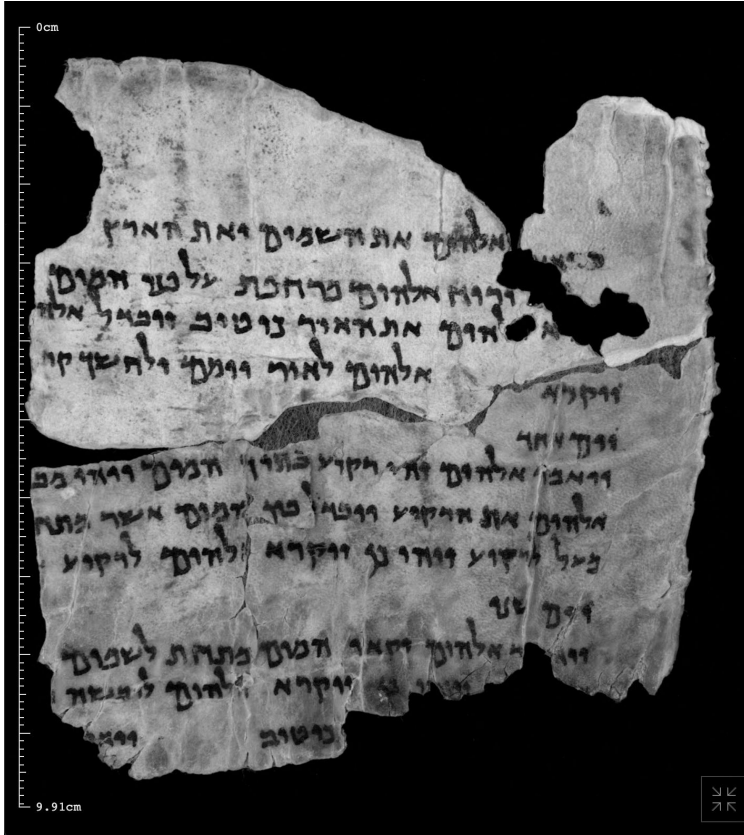 0cm
אלהים את השמים ואת הארץ
ורוח אלהים מרחפת על פני המים
להים את האור כי טוב ויבדל אלה
ויקרא אלהים לאור יומם ולחשך קר
יום אחד
ויאמר אלהים יהי רקיע בתוך המים ויהי מב
אלהים את הרקיע ויבדל בין המים אשר מתח
מעל לרקיע ויהי כן ויקרא אלהים לרקיע
יום שני
אלהים יקאו המים מתחת לשמים
ויקרא אלהים ליבשה
כי טוב
9.91cm